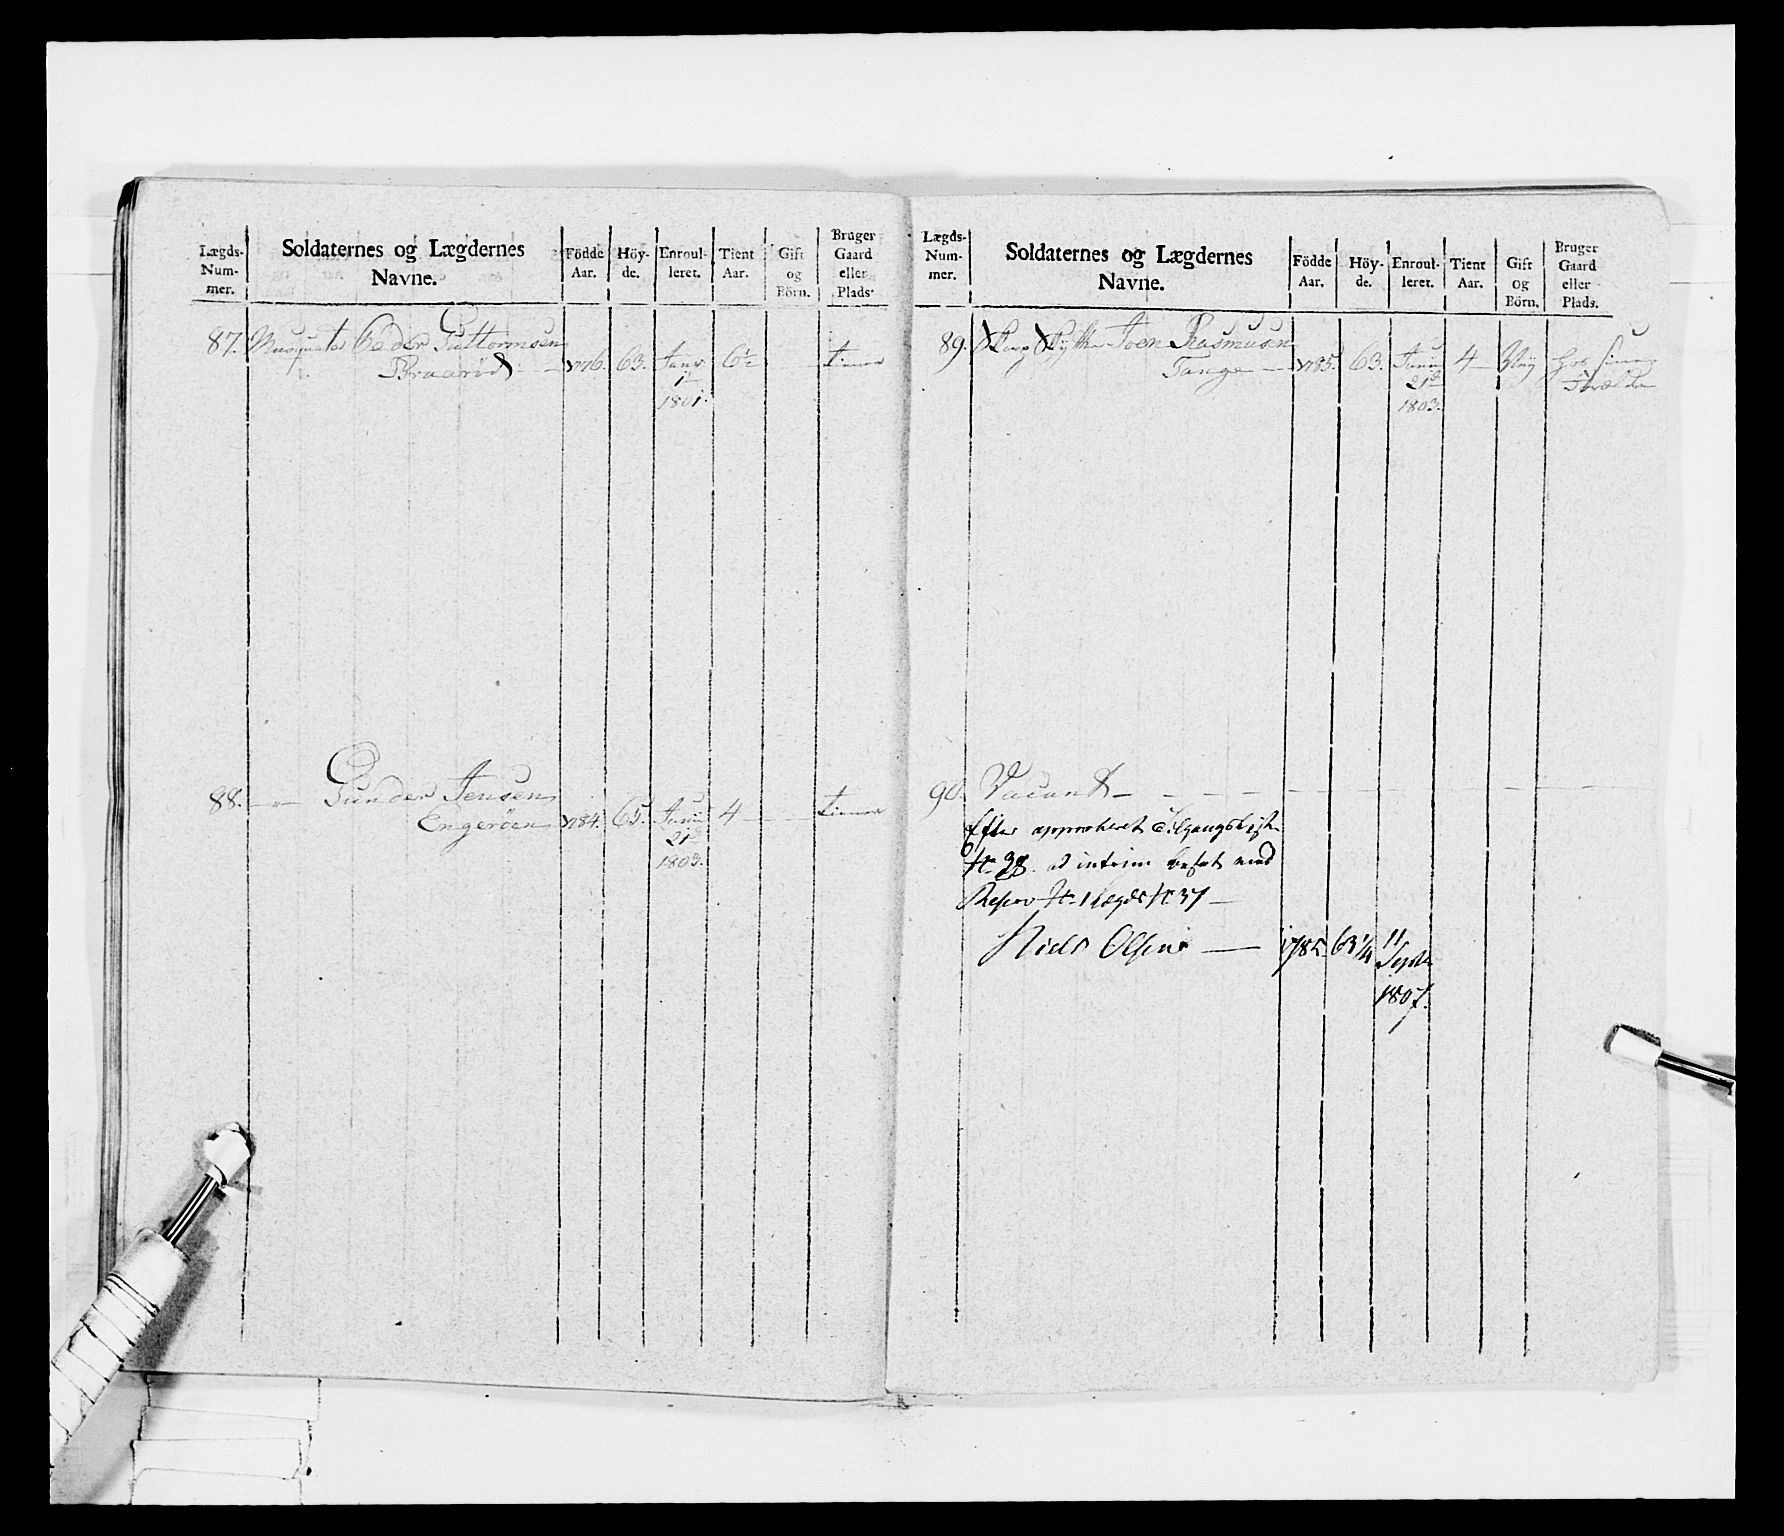 Lægds-
Num-
mer.
Soldaternes og Lægdernes
Navne.
Födde
Aar.
Höy-
de.
Enroul-
leret.
Tient
Aar.
Gift
og
Börn.
Bruger
Gaard
eller
Plads.
87. Musqueter Peder Guttormsen
Braarød 1776. 63. Janv. 6½ tiener
1te
1801.
88. Gunder Jensen
Engeröen 1784. 65. Junii 4 tiener
21de
1803.
Lægds-
Num-
mer.
Soldaternes og Lægdernes
Navne.
Födde
Aar.
Höy-
de.
Enroul-
leret.
Tient
Aar.
Gift
og
Börn.
Bruger
Gaard
eller
Plads.
89. Skarp Skytte Joen Rasmusen
Tange 1785. 63. Junii 4 hos sine
21de Forældre
1803.
90. Vacant
Efter approberet Afgangsliste
No 28 ad interim besat med
Reserv No 1 Lægds No 37
Niels Olsen 1785. 63¼ 11
Septbr
1807.